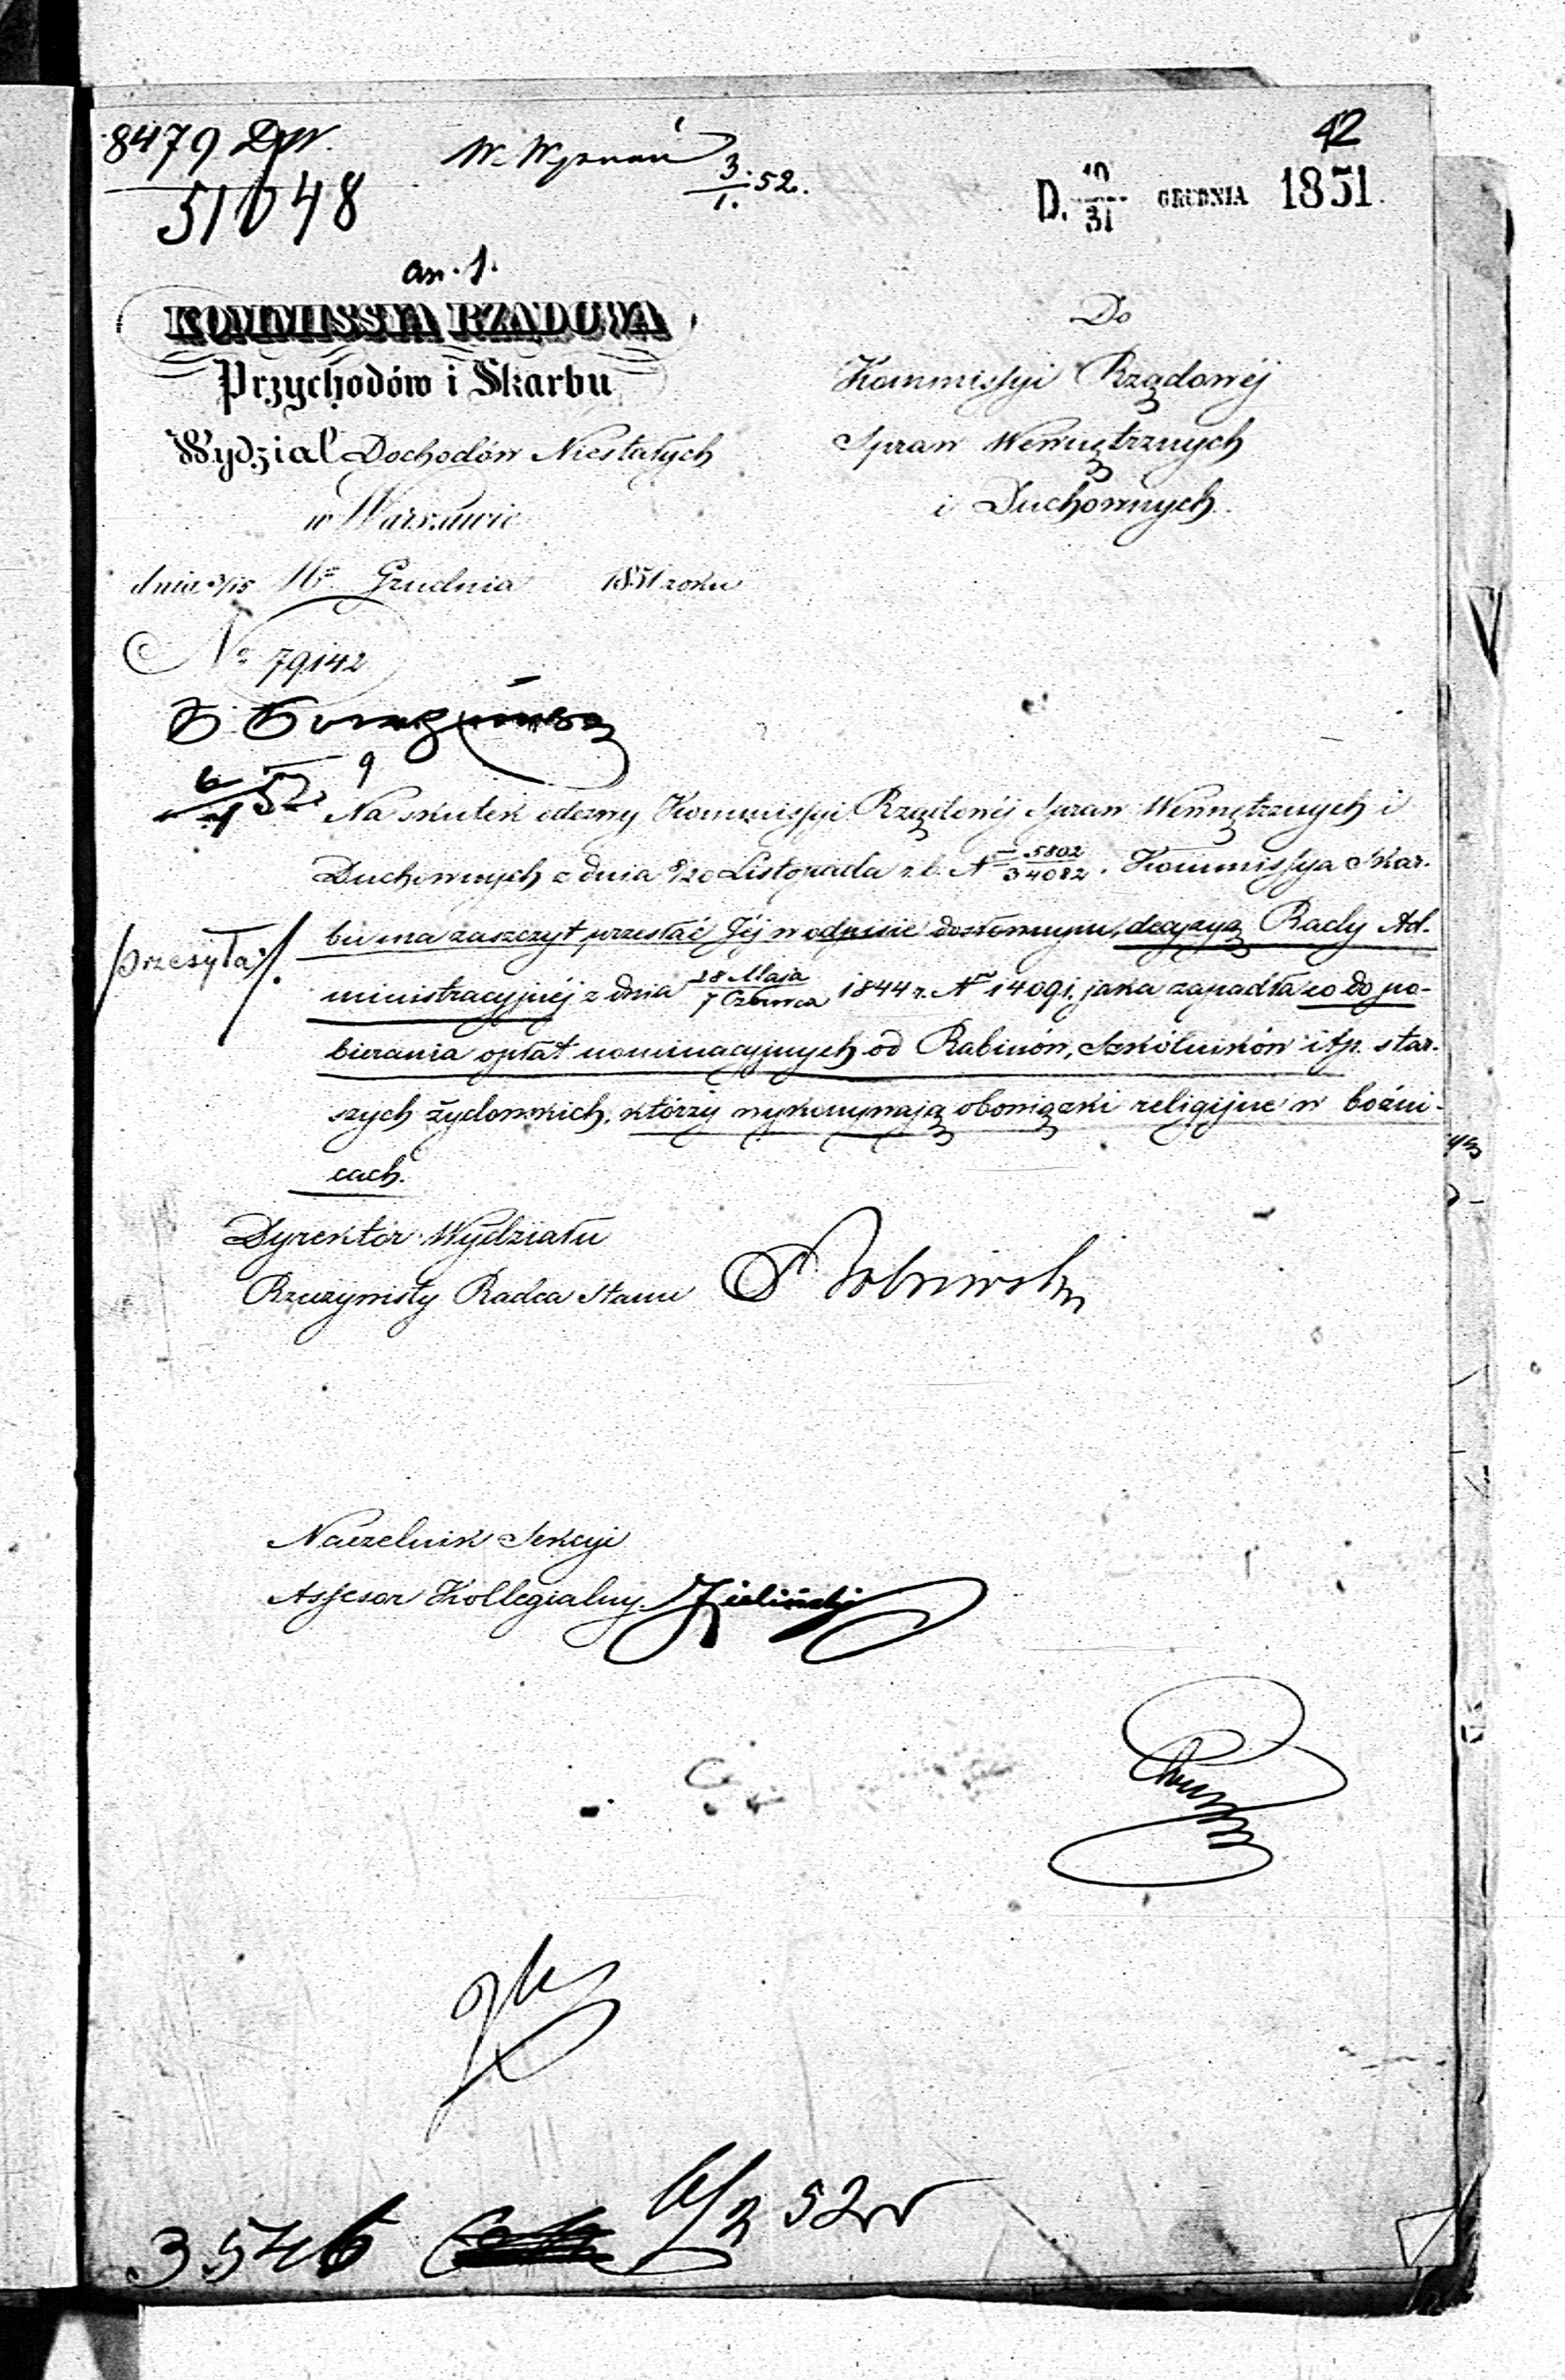 42
8479 Dyr.
51648
W. Wyznań 3/1. 52.
D. 19/31 GRUDNIA 1851.
an. 1.
KOMMISSYA RZĄDOWA
Przychodów i Skarbu
Wydział Dochodów Niestałych
w Warszawie
dnia 3/15 Grudnia 1851 roku
No 79142
Do
Kommissyi Rządowéj
Spraw Wewnętrznych
i Duchownych.
6/1 52.
Na skutek odezwy Kommissyi Rządowéj Spraw Wewnętrznych i
Duchownych z dnia 8/20 Listopada r.b. N 5802/34082. Kommissya Skar-
bu ma zaszczyt przesłać Jéj w odpisie dosłownym, decyzyą Rady Ad-
przesyła
ministracyjnéj z dnia 28 Maja/7 Czerwca 1844 r. No 14091. jaka zapadła co do po-
bierania opłat nominacyjnych od Rabinów, Szkólników itp. star-
szych żydowskich, którzy wykonywają obowiązki religijne w bóźni-
cach.
Dyrektor Wydziału
Rzeczywisty Radca Stanu
Naczelnik Sekcyi
Assesor Kollegialny. Zieliński
3546 52 r